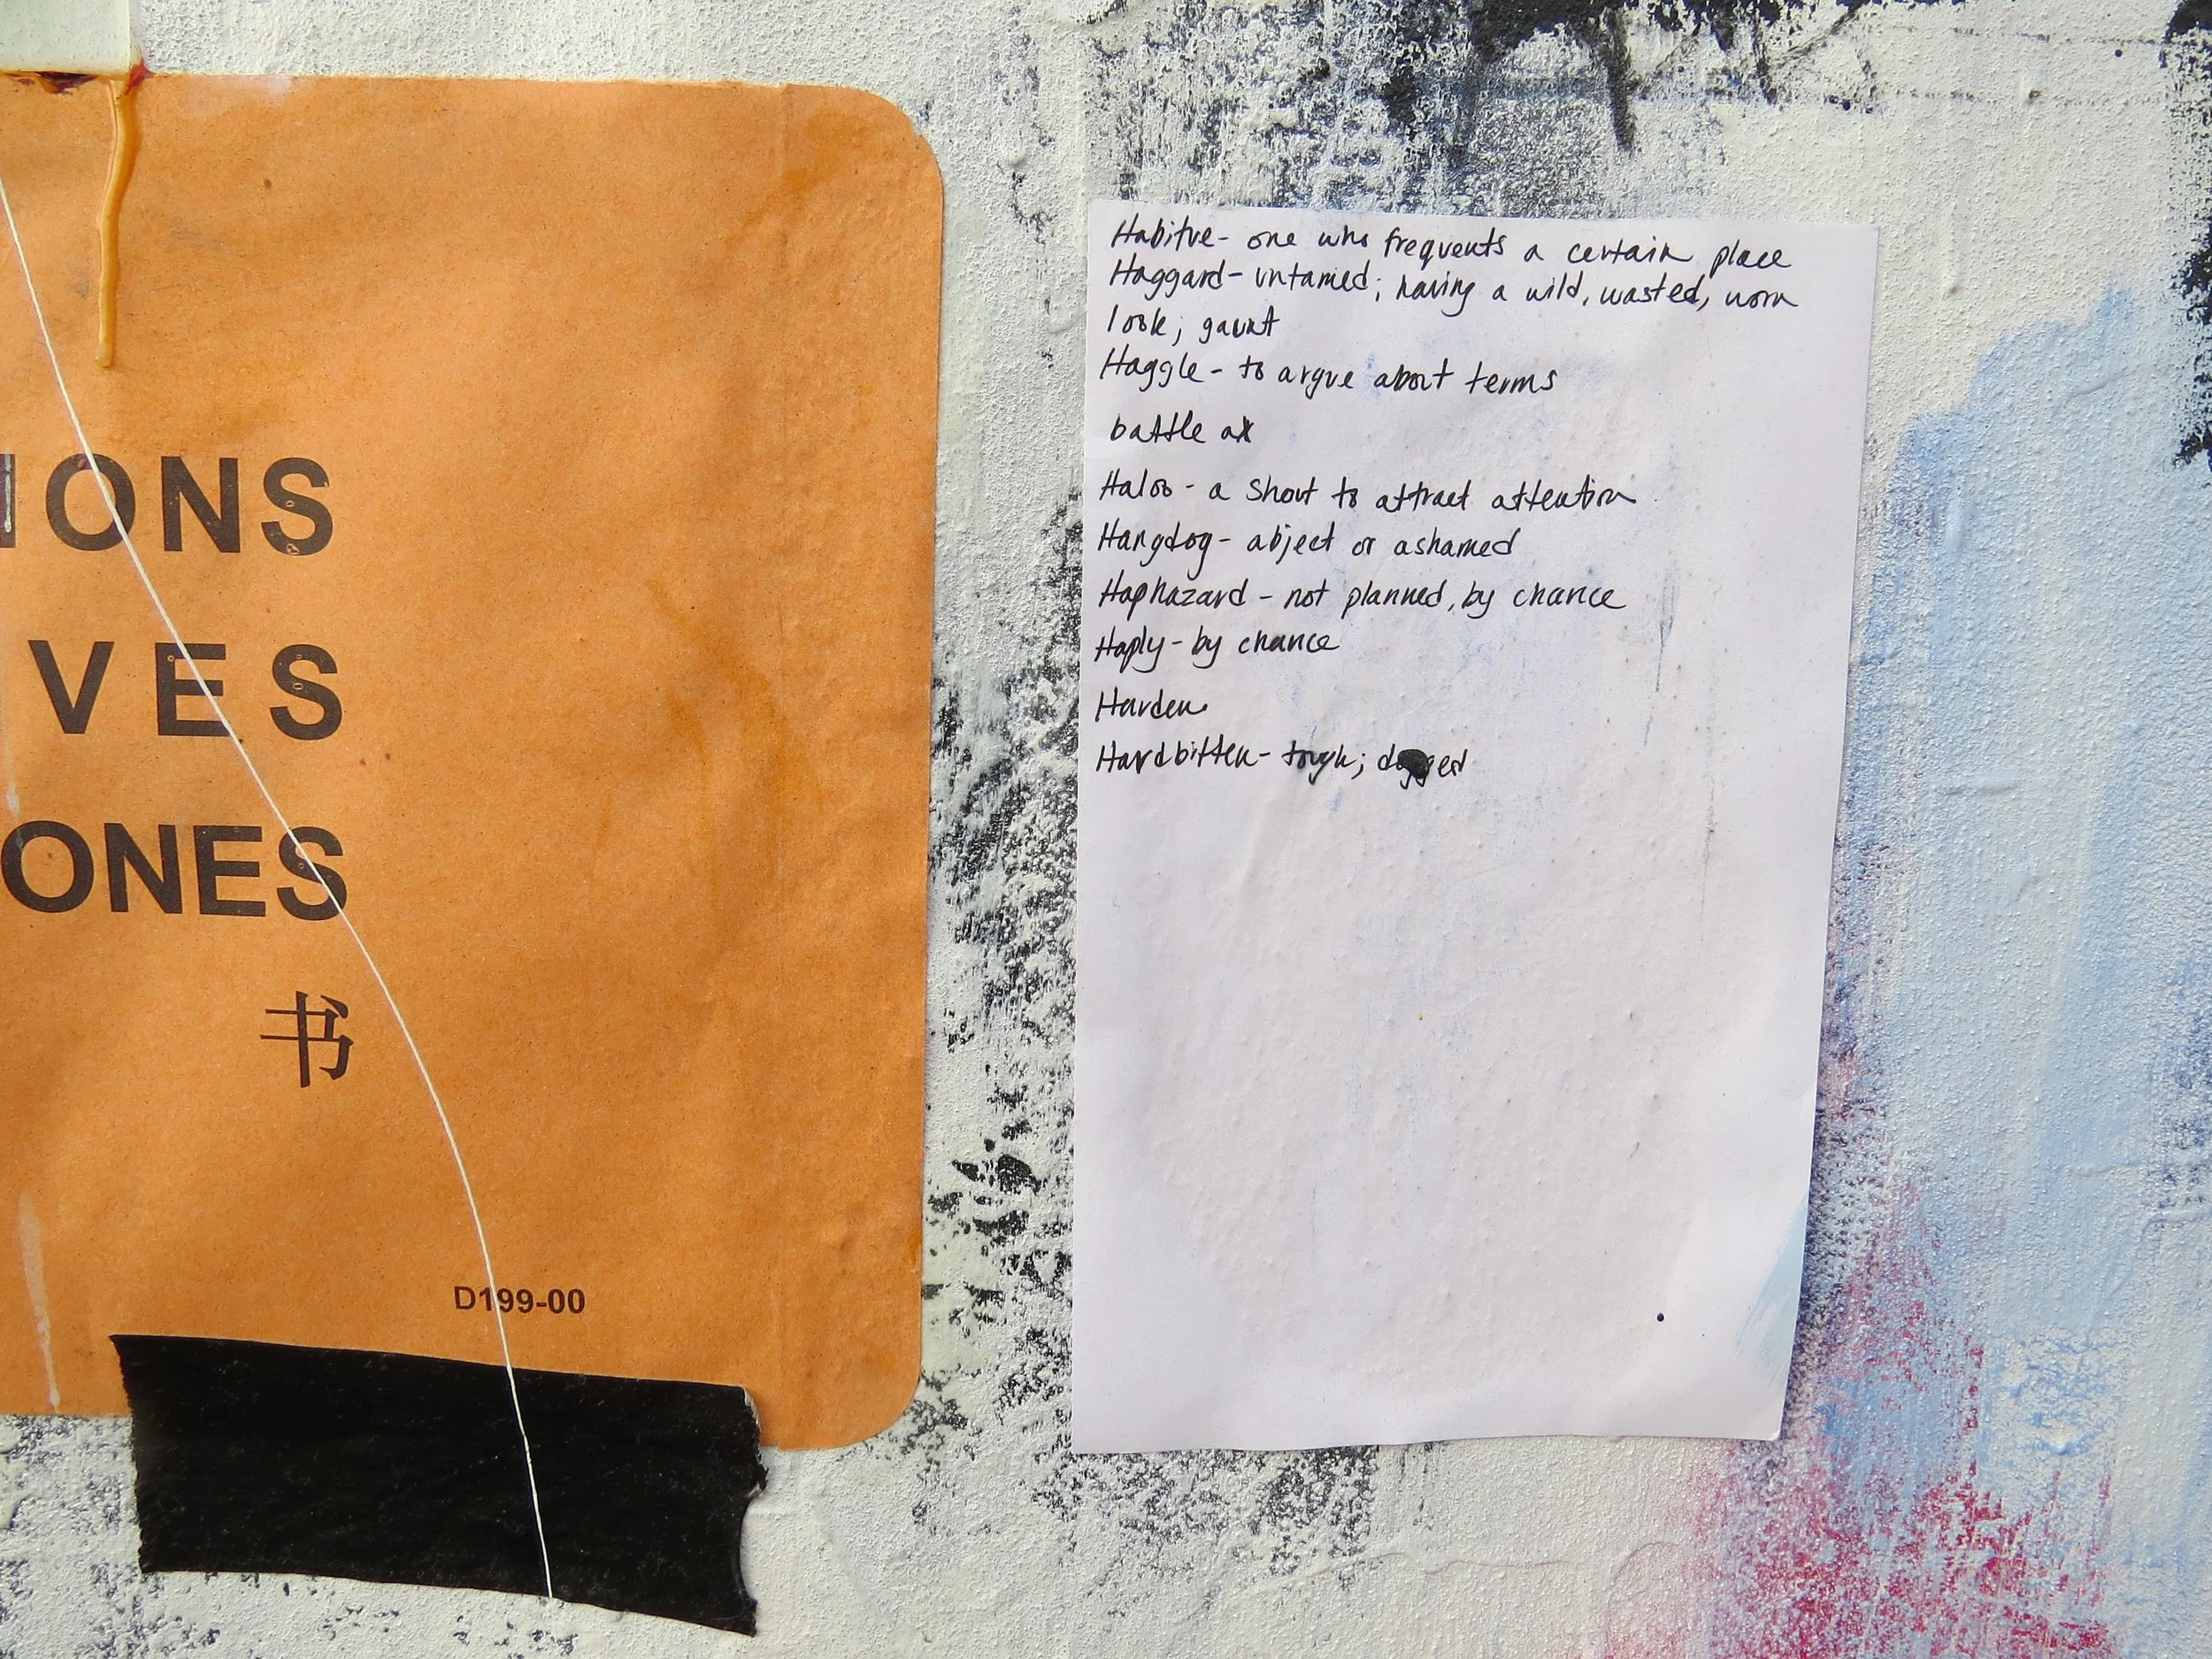 IONS
VES
ONES
书
D199-00
Habitue- one who frequents a certain place
Haggard- untamed; having a wild, wasted, worn
look; gaunt
Haggle - to argue about terms
battle ax
Haloo - a shout to attract attention
Hangdog- abject or ashamed
Haphazard - not planned, by chance
Haply- by chance
Harden
Hardbitten- tough; dogged